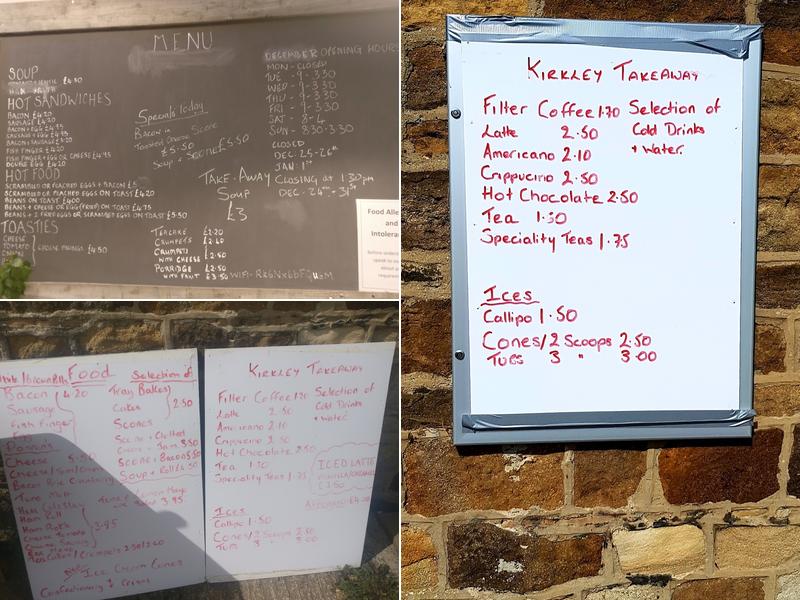 MENU
SOUP
HOT SANDWICHES
BACON £4.20
SAUSAGE £4.20
BACON + EGG £4.95
SAUSAGE + EGG £4.95
BACON + SAUSAGE £5.20
FISH FINGER £4.20
FISH FINGER + EGG OR CHEESE £4.95
DOUBLE EGG £4.20
HOT FOOD
SCRAMBLED OR POACHED EGGS + BACON £5
SCRAMBLED OR POACHED EGGS ON TOAST £4.20
BEANS ON TOAST £4.00
BEANS + CHEESE OR EGG (FRIED) ON TOAST £4.75
BEANS + 2 FREE EGGS OR SCRAMBLED EGGS ON TOAST £5.50
TOASTIES
CHEESE
TOMATO
ONION
£4.50
Specials Today
Bacon +
Toasted Cheese Scone
£5.50
Soup + Scone £5.50
TAKE-AWAY
SOUP
£3
TEACAKE £2.20
CRUMPETS £2.40
CRUMPETS
WITH CHEESE £2.50
PORRIDGE £2.50
WITH FRUIT £3.50
DECEMBER OPENING HOURS
MON - CLOSED
TUE - 9-3.30
WED - 9-3.30
THU - 9-3.30
FRI - 9-3.30
SAT - 8-4
SUN - 8:30-3:30
CLOSED
DEC. 25-26th
JAN. 1st
CLOSING AT 1:30pm
DEC. 24th - 31st
Food Alle
and
Intoleran
KIRKLEY TAKEAWAY
Filter Coffee 1.70 Selection of
Latte 2.50 Cold Drinks
Americano 2.10 + Water.
Cappucino 2.50
Hot Chocolate 2.50
Tea 1.50
Speciality Teas 1.75
Ices
Callipo 1.50
Cones/2 Scoops 2.50
Tubs 3 " 3.00
Food
Bacon 4.20
Sausage
Fish Finger
Egg
Cheese
Bacon Brie Cranberry
Tuna Mayo
Ham
Cheese Tomato
3.95
Selection of
Tray Bakes
Cakes 2.50
Scones
Scone + Clotted
Cream + Jam 3.50
Scone + Bacon
Soup + Roll £4.50
Ice Cream Cones
KIRKLEY TAKEAWAY
Filter Coffee 1.70 Selection of
Latte 2.50 Cold Drinks
Americano 2.10 + Water
Cappucino 2.50
Hot Chocolate 2.50
Tea 1.50
Speciality Teas 1.75
ICED LATTE
£3.50
Ices
Callipo 1.50
Cones/2 Scoops 2.50
Tubs 3 " 3.00